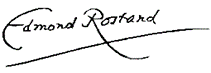 Edmond Rostand